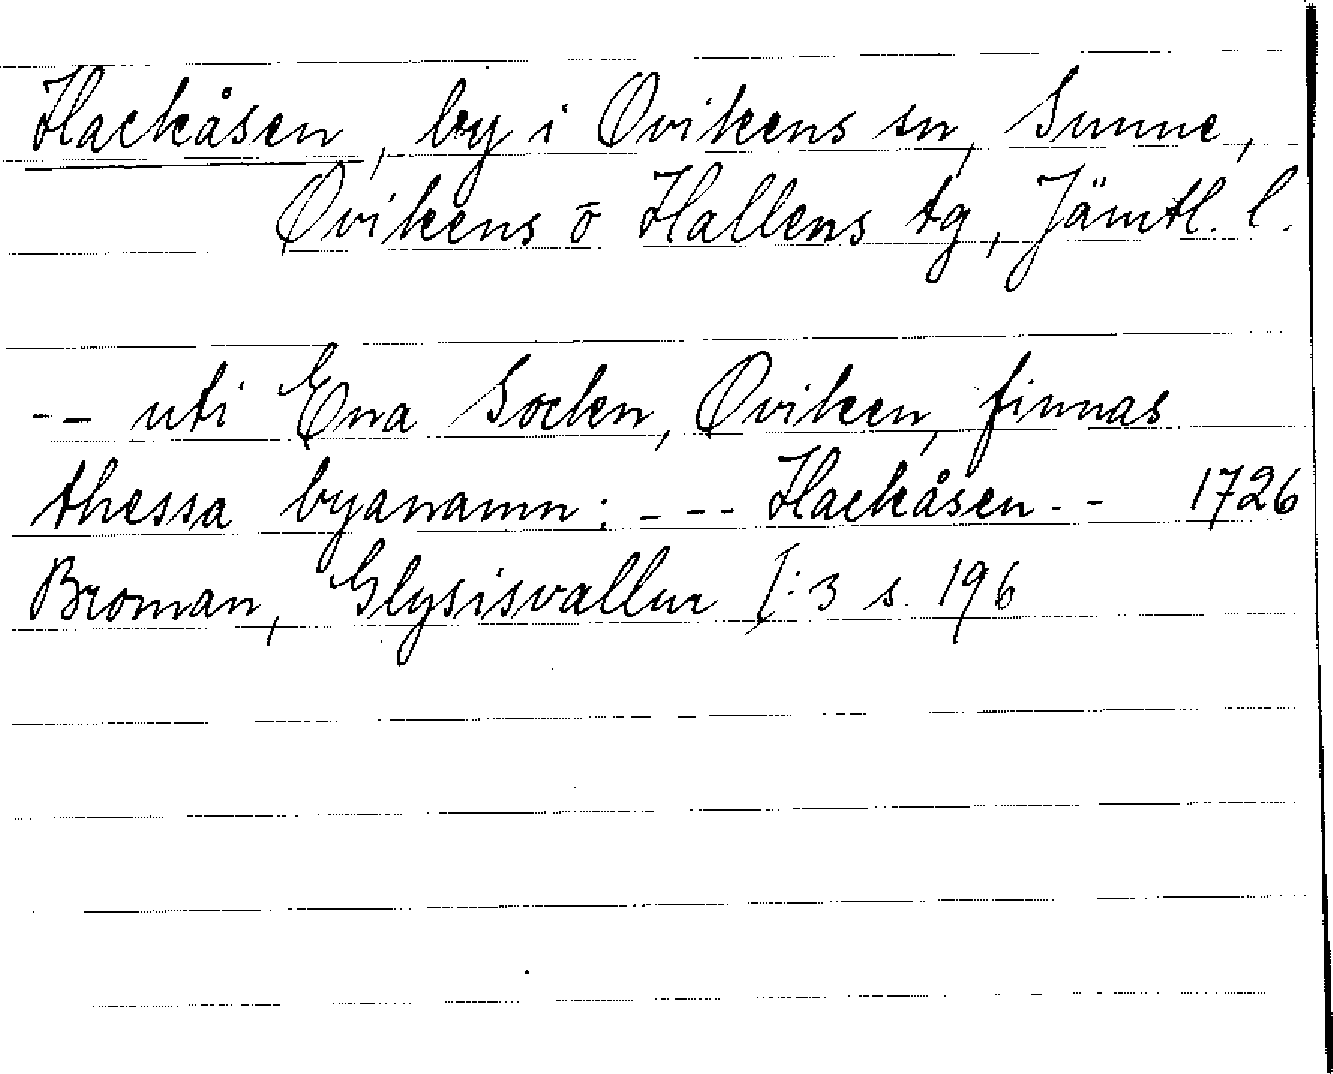 Hackåsen, by i Ovikens sn, Sunne,
Ovikens o Hallens tg, Jämtl. l.
-- uti Ena Socken, Oviken, finnas
thessa byanamn: --- Hackåsen -- 1726
Broman, Glysisvallur I:3 s. 196